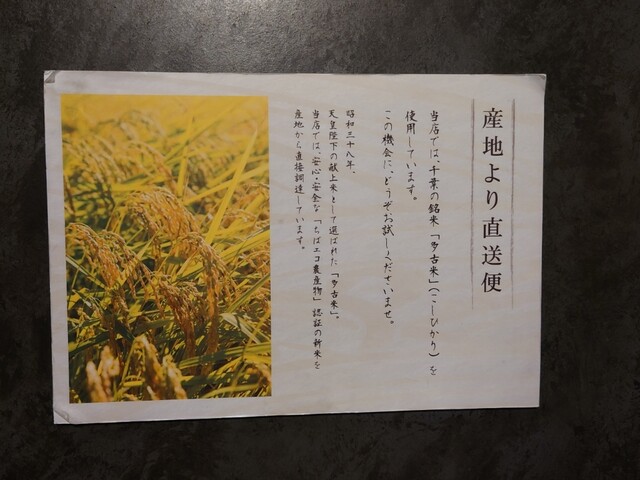 産地より直送便
当店では、千葉の銘米「多古米」(こしひかり)を
使用しています。
この機会に、どうぞお試しくださいませ。
昭和三十八年、
天皇陛下の献上米として選ばれた「多古米」。
当店では、安心・安全な「ちばエコ農産物」認証の新米を
産地から直接調達しています。